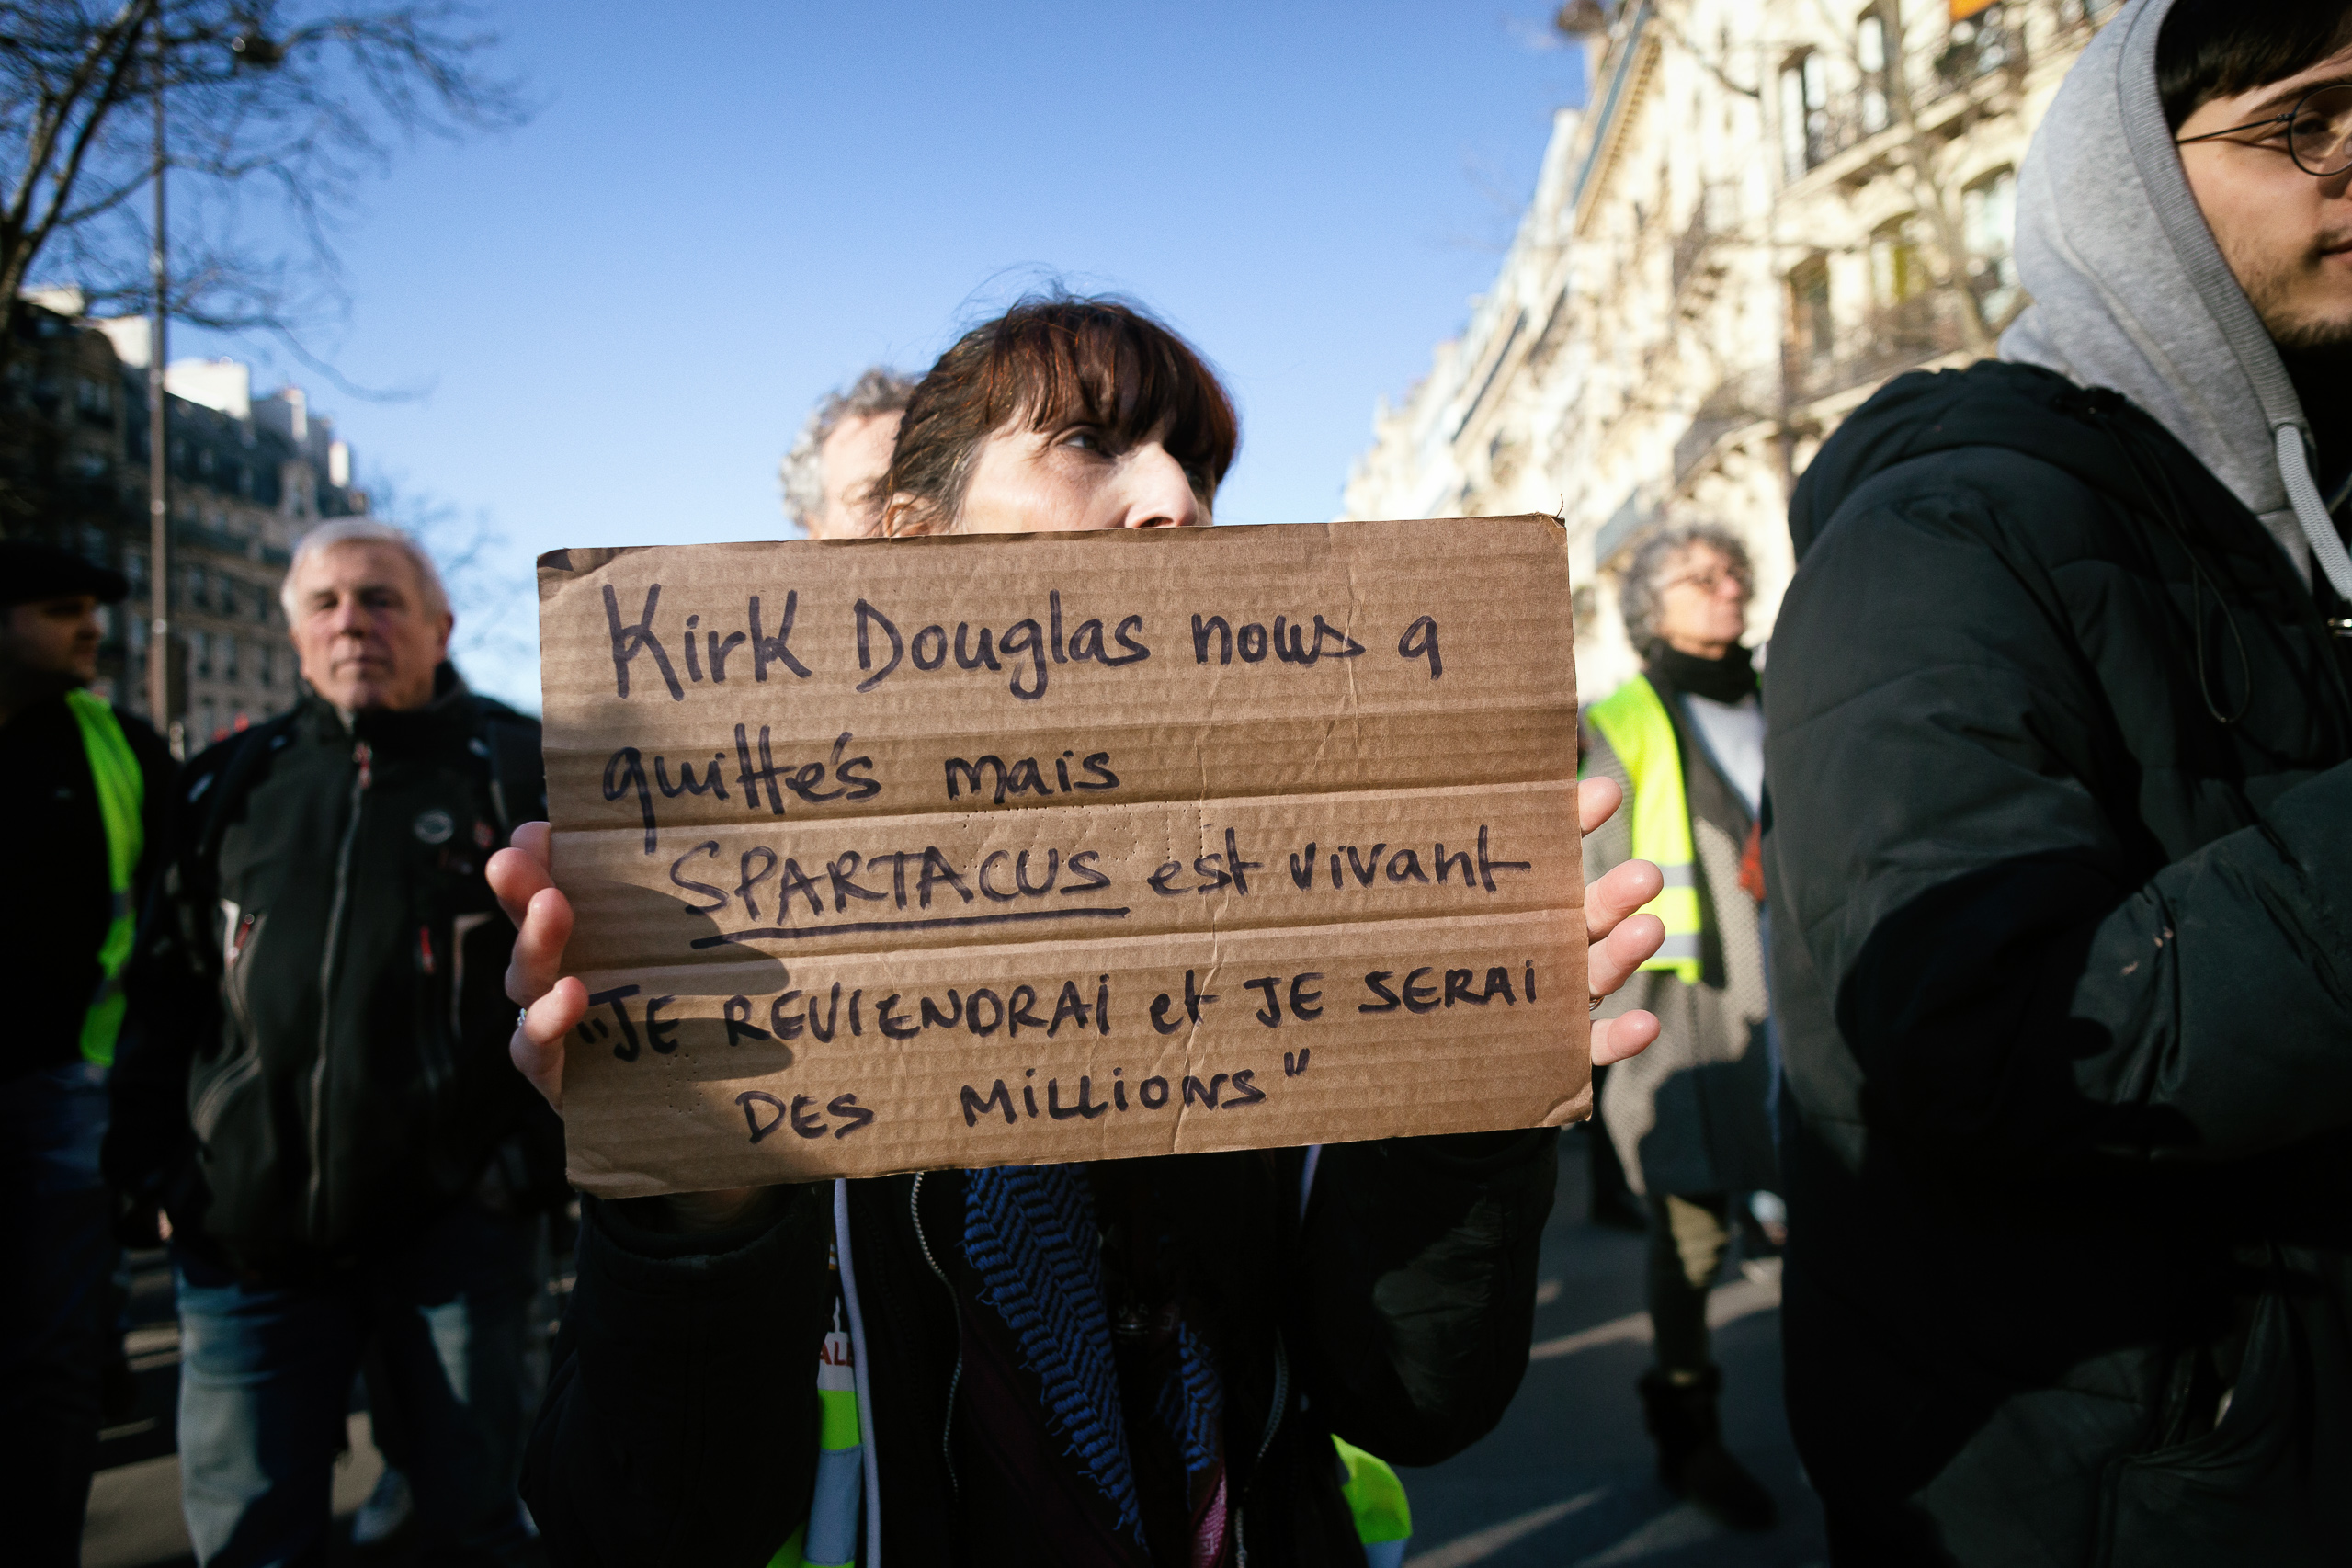 Kirk Douglas nous a
quittés mais
SPARTACUS est vivant
"JE REVIENDRAi et JE SERAi
DES MiLLiONS"